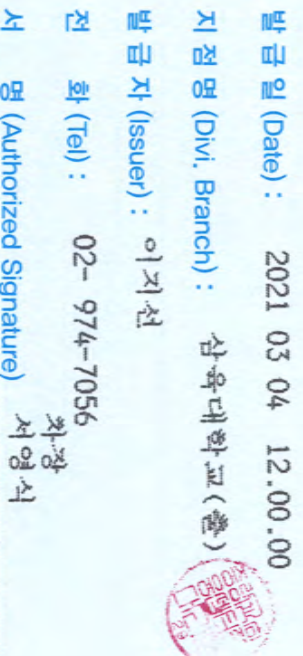 발 급 일 (Date) : 2021 03 04 12.00.00
지 점 명 (Divi. Branch) : 삼육대학교(출)
발 급 자 (Issuer) : 이지선
전 화 (Tel) : 02- 974-7056
차장
서 명 (Authorized Signature) 서영식